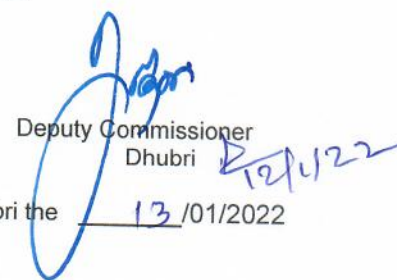 Deputy Commissioner
Dhubri
12/1/22
ori the 13/01/2022